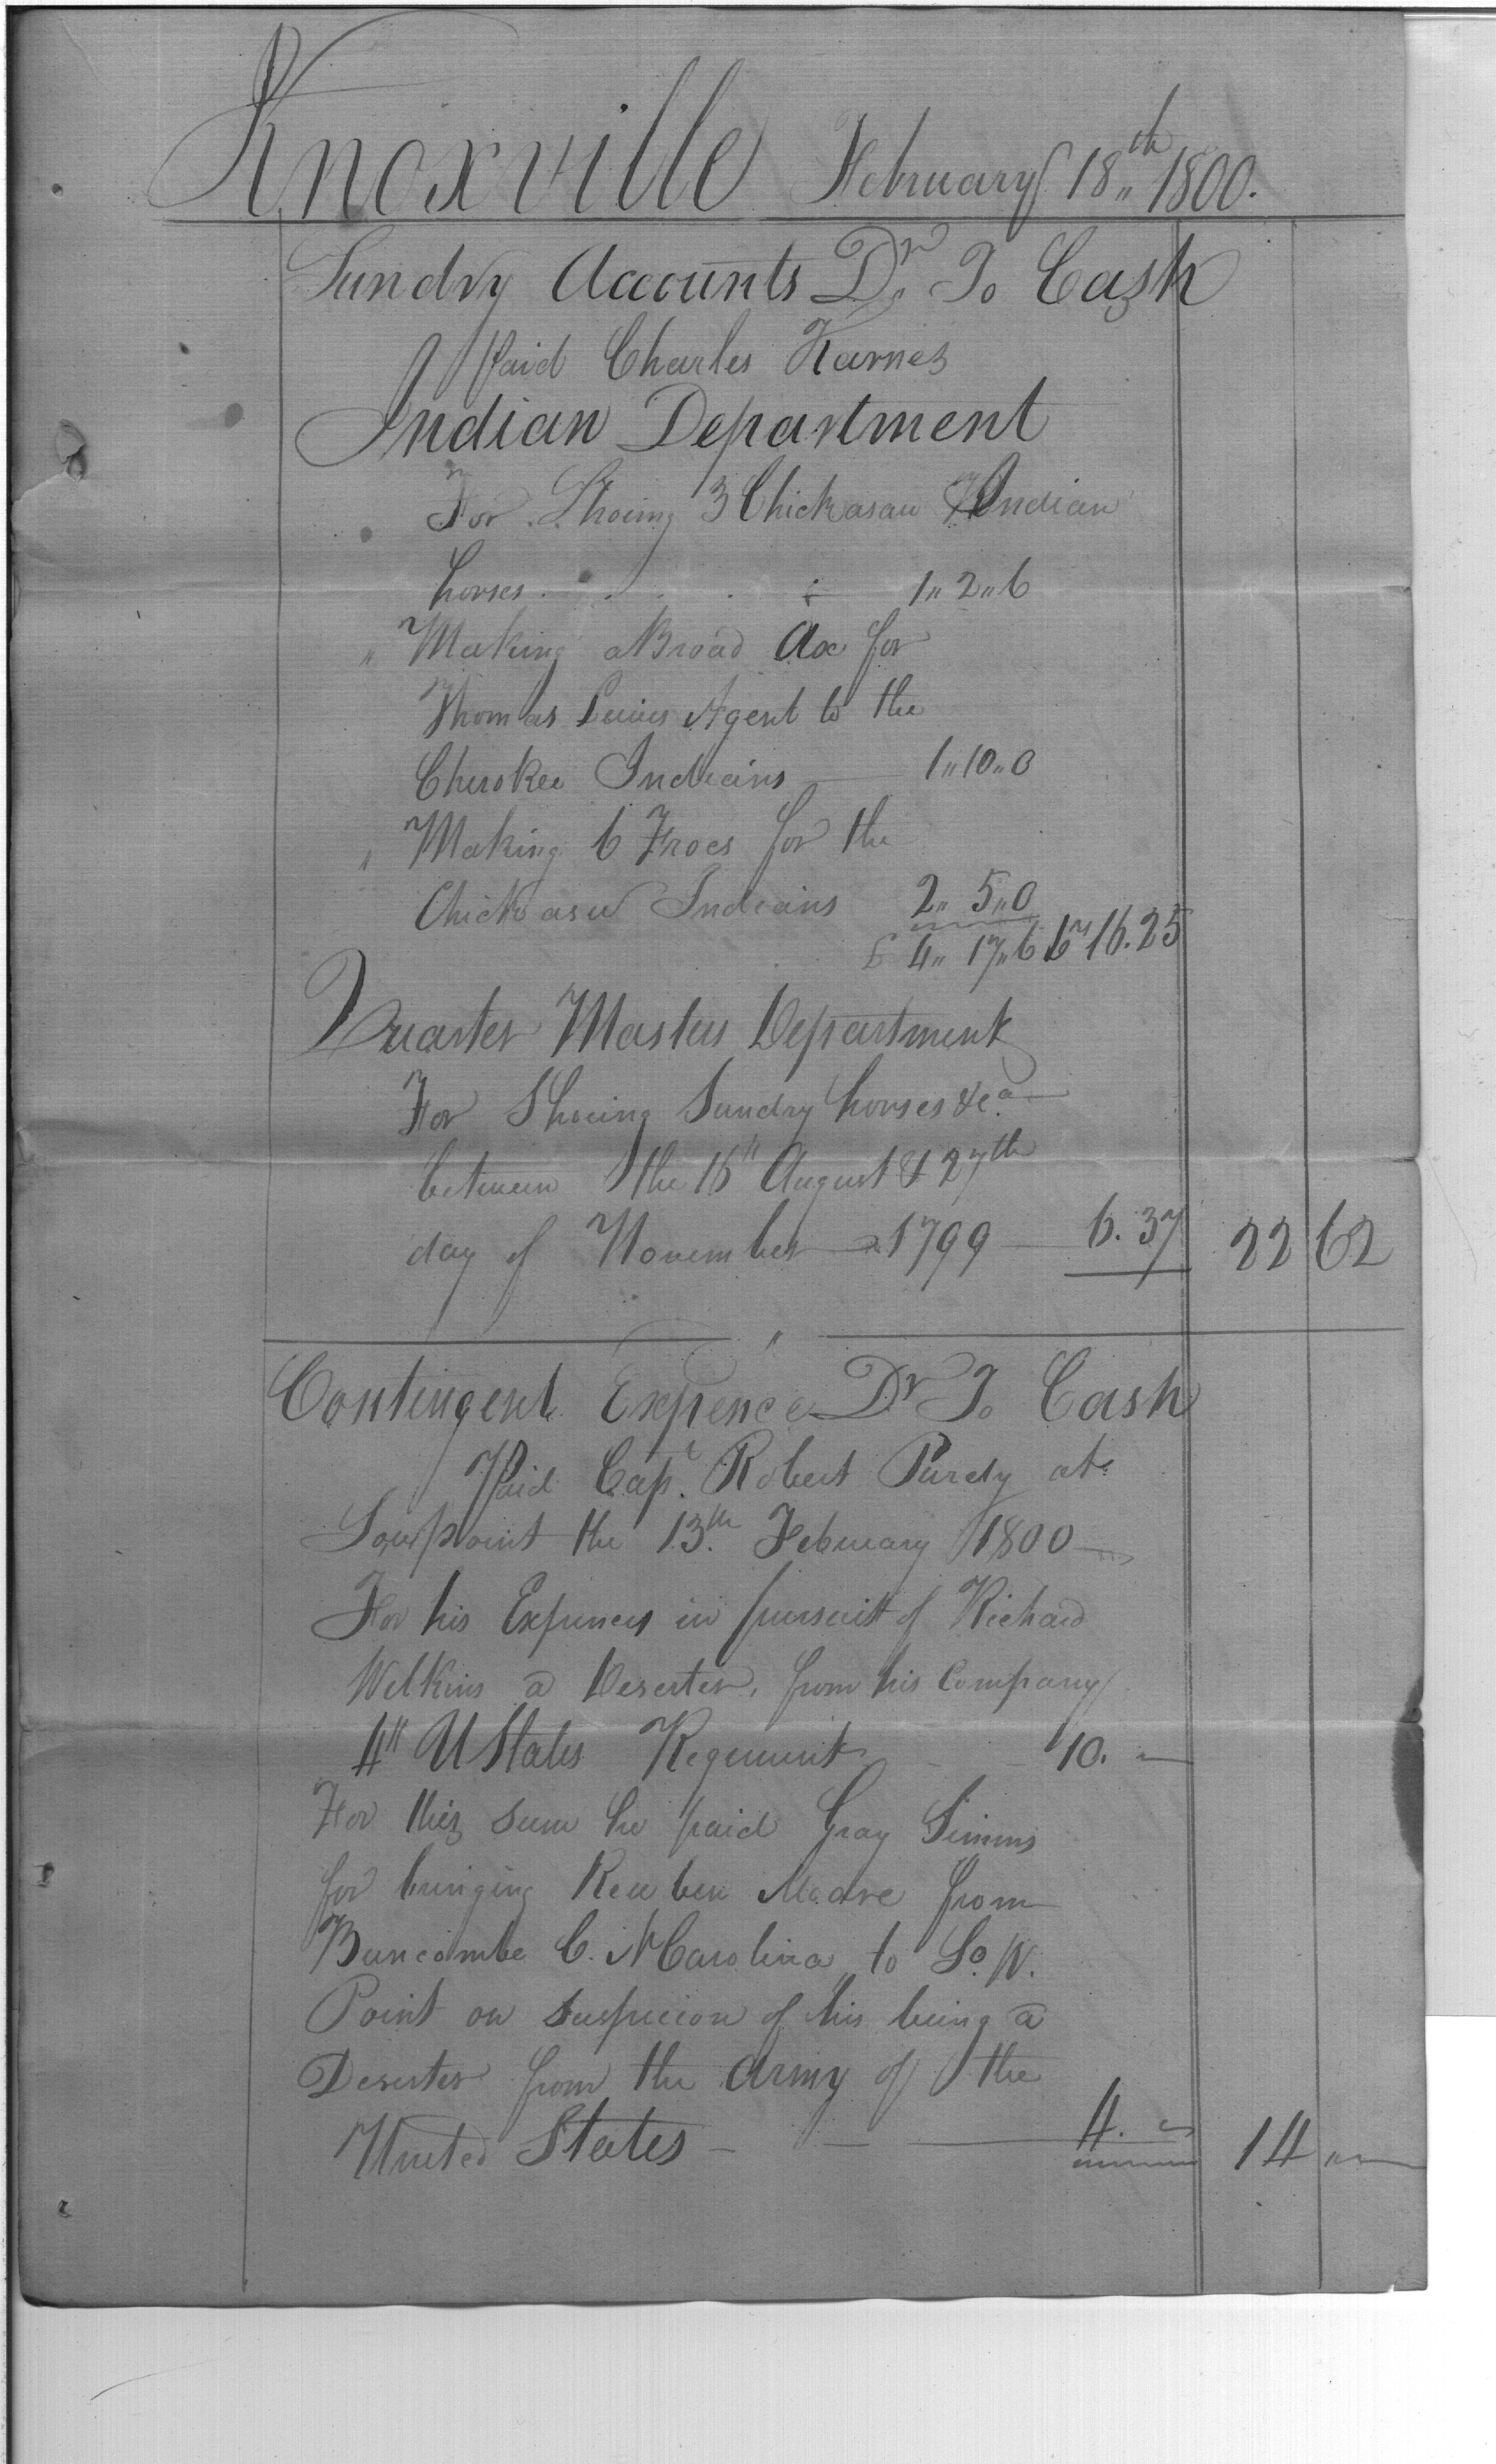 Knoxville February 18,, th 1800.
Sundry Accounts Dr. To Cash
Paid Charles Karnes
Indian Department
For Shoeing 3 Chickasaw Indian
horses . . . . 1,, 2,, 6
,, Making a Broad Ax for
Thomas Lewis Agent to the
Cherokee Indians — 1,, 10,, 0
,, Making 6 Froes for the
Chickasaw Indians 2,, 5,, 0
£ 4,, 17,, 6 16.25
Quarter Masters Department
For Shoeing Sundry horses &ca
between the 16th August & 27th
day of November 1799 — 6.37 22 62
Contingent Expence Dr To Cash
Paid Capt. Robert Purdy at
Sowpoint the 13th. February 1800 —
For his Expences in pursuit of Richard
Wilkins a Deserter, from his Company
4th U States Regement - - 10. —
For this sum he paid Gray Simms
for bringing Reuben Moore from
Buncombe C. N Carolina to So. W.
Point on suspicion of his being a
Deserter from the Army of the
United States - — 4. — 14 ,, —